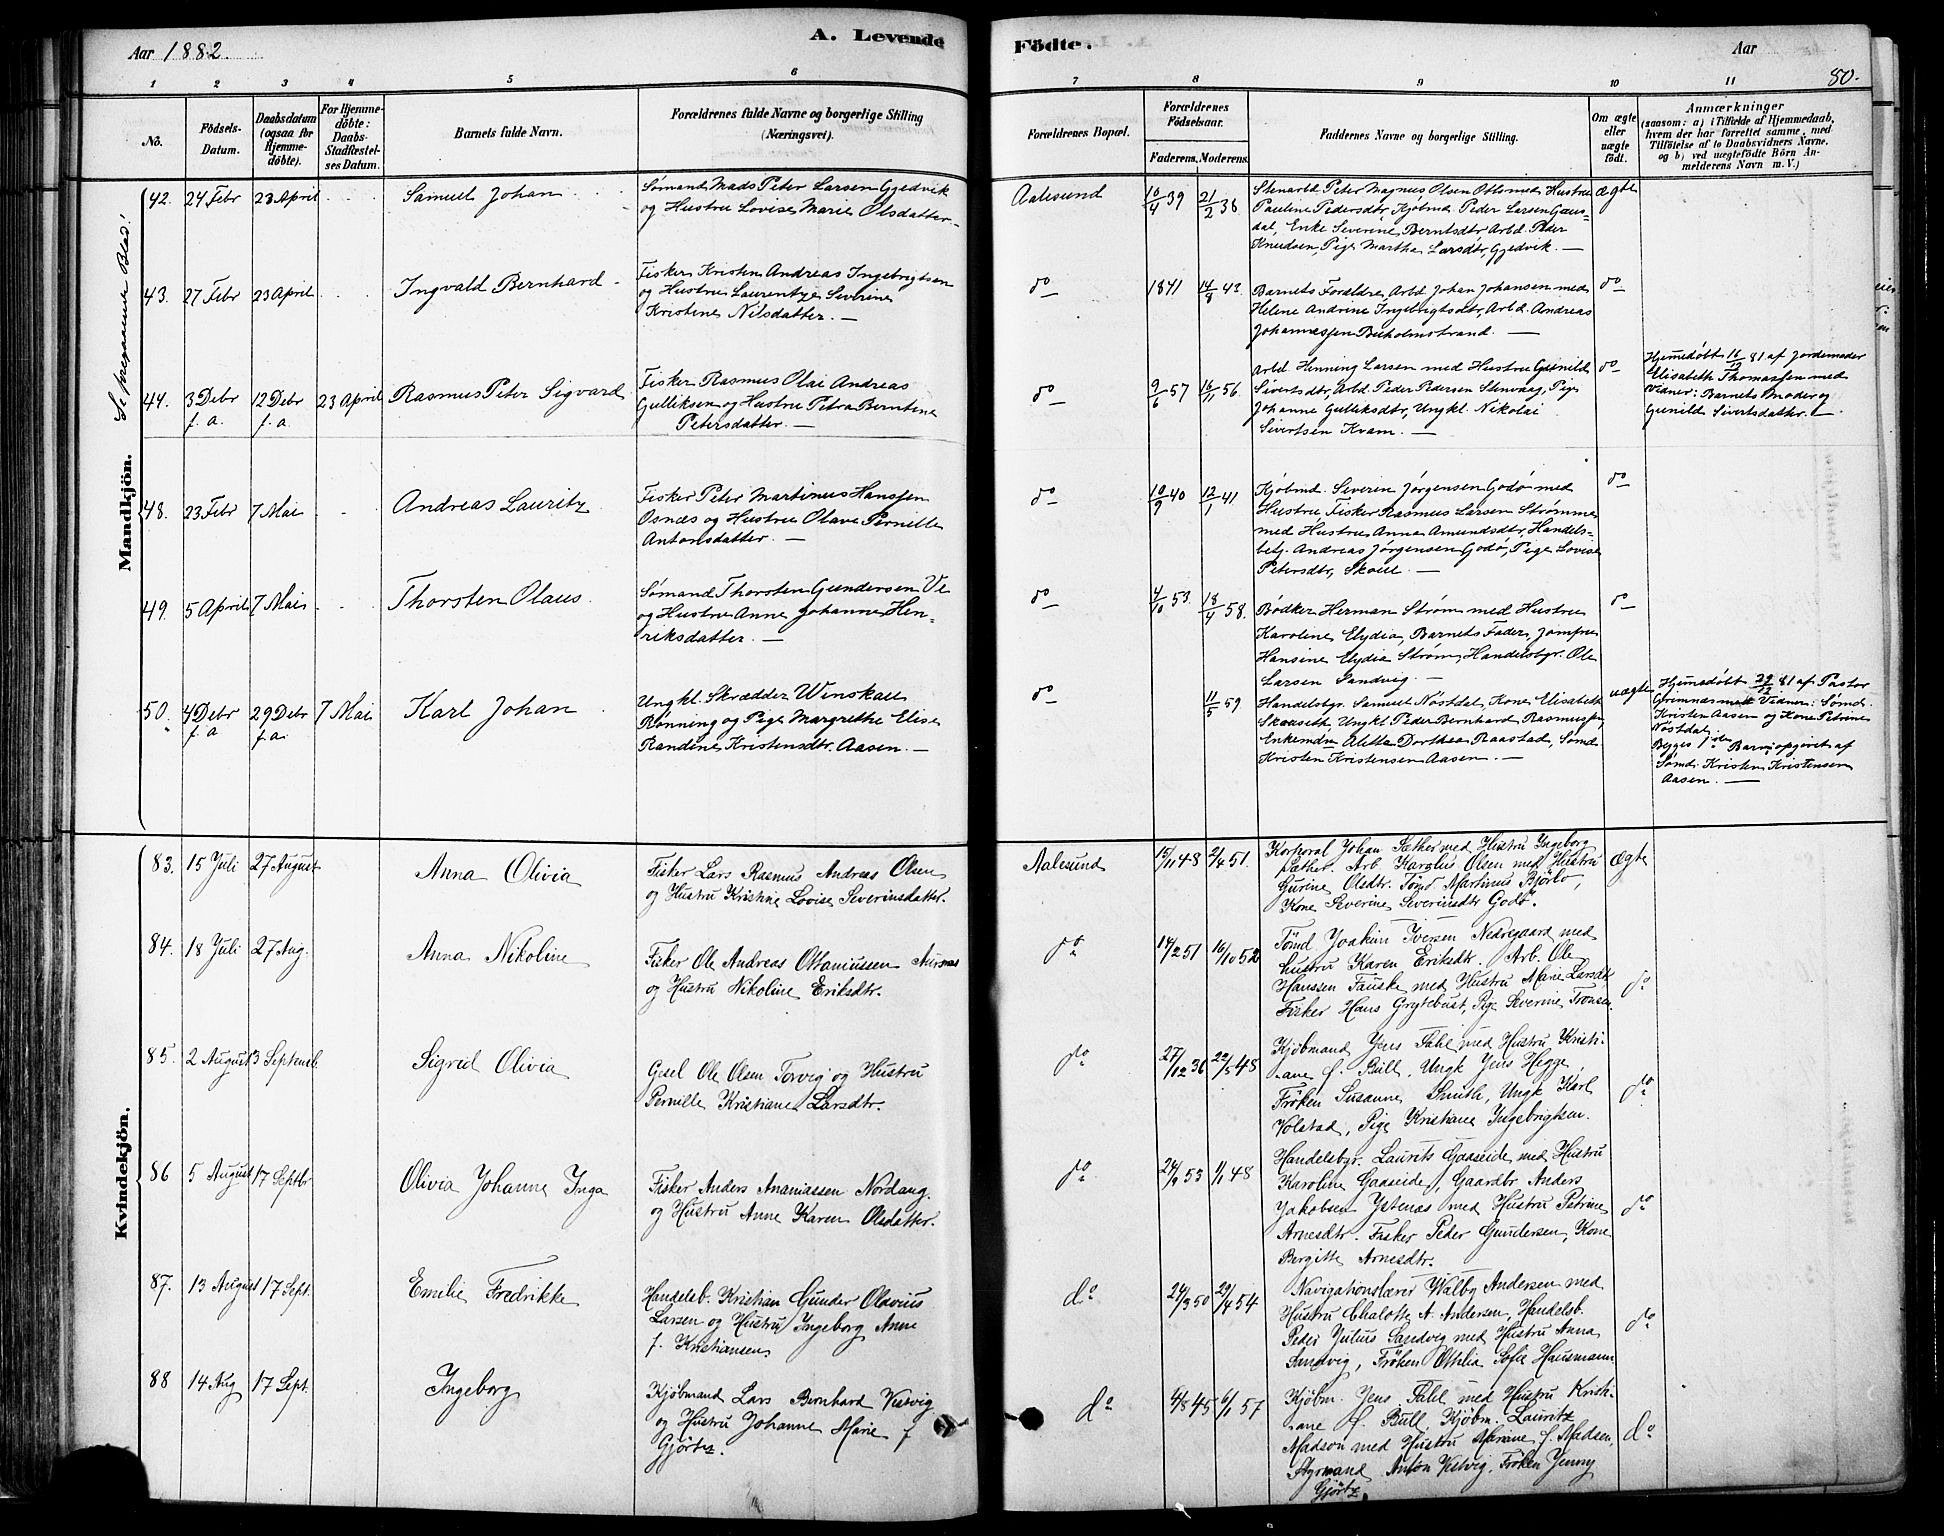 Aar 1882.
A. Levende
Födte.
Aar
80.
1 2 3 4 5 6 7 8 9 10 11
No.
Födsels-
Datum.
Daabsdatum
(ogsaa for
Hjemme-
döbte).
For Hjemme-
döbte:
Daabs-
Stadfæstel-
ses Datum.
Barnets fulde Navn.
Forældrenes fulde Navne og borgerlige Stilling
(Næringsvei).
Forældrenes Bopæl.
Forældrenes
Födselsaar.
Faderens. Moderens.
Faddernes Navne og borgerlige Stilling.
Om ægte
eller
uægte
födt.
Anmærkninger
(saasom: a) i Tilfælde af Hjemmedaab,
hvem der har forrettet samme, med
Tilföielse af to Daabsvidners Navne,
og b) ved uægtefödte Börn An-
melderens Navn m. V.)
Se foregaaende Blad!
Mandkjön.
42. 24 Febr 23 April
Samuel Johan
Sømand Mads Peter Larsen Gjedvik
og Hustru Lovise Marie Olsdatter. —
Aalesund
10/4 39 21/2 36
Stenarbd. Peter Magnus Olsen Ottsmed Hustru
Pauline Pedersdtr, Kjøbmd. Peder Larsen Gaus-
dal, Enke Severine Berntsdtr, Arbd. Peder
Knudsen, Pige Martha Larsdtr, Gjedvik. —
ægte
43. 27 Febr 23 April
Ingvald Bernhard
Fisker Kristen Andreas Ingebrigtsen
og Hustru Laurentze Severine
Kristene Nilsdatter. —
do
1841 14/8 43.
Barnets Forældre, Arbd. Johan Johansen med
Helene Andrine Ingebrigtsdtr, Arbd. Andreas
Johannessen Buholmstrand. —
do
44. 3 Debr f. a. 12 Debr f. a. 23 April
Rasmus Peter Sigvard
Fisker Rasmus Olai Andreas
Gulliksen og Hustru Petra Berntine
Petersdatter. —
do
9/6 57 16/11 56
Arbd. Henning Larsen med Hustru Gunild
Sivertsdtr, Arbd. Peder Pedersen Stenvaag, Pige
Johanne Gulliksdtr, Ungkl. Nikolai
Sivertsen Kvam. —
do
Hjemmedøbt 81 af Jordemoder
Elisabeth Thomassen med
Vidner: Barnets Moder og
Gunild Sivertsdatter. —
48. 23 Febr 7 Mai
Andreas Lauritz
Fisker Peter Martinus Hanssen
Osnæs og Hustru Olave Pernille
Antonsdatter. —
do
10/9 40 12/1 41
Kjøbmd. Severin Jørgensen Godø med
Hustru Fisker Rasmus Larsen Strømme
med Hustru Anna Amundsdtr, Handels-
betj. Andreas Jørgensen Godø, Pige Lovise
Petersdtr, Skoue. —
do
49. 5 April 7 Mai
Thorsten Olaus.
Sømand Thorsten Gundersen Ve
og Hustru Anne Johanne Hen-
riksdatter. —
do
4/10 53. 18/4 58.
Bødker Herman Strøm med Hustru
Karoline Elydia, Barnets Fader, Jomfru
Hansine Elydia Strøm, Handelsbgr. Ole
Larsen Sandvig. —
do
50. 4 Debr f. a 29 Debr f. a. 7 Mai
Karl Johan
Ungkl. Skrædder Winskau
Rønning og Pige Margrethe Elise
Randine Kristensdtr. Aasen. —
do
11/5 59
Handelsbgr. Samuel Nøstdal, Kone Elisabeth
Ungkl. Peder Bernhard Rasmussen,
Enkemdn Aletta Dorthea Raastad, Sømd.
Kristen Kristensen Aasen. —
uægte
Hjemmedøbt 29/12 81 af Pastor
Grimnæs med Vidner: Sømd.
Kristen Aasen og Kone Petrine
Nøstdal.
Begges Barn, opgivet af
Sømd. Kristen Kristensen
Aasen. —
Kvindekjön.
83. 15 Juli 27 August
Anna Olivia
Fisker Lars Rasmus Andreas Olsen
og Hustru Kristine Lovise Severinsdatter.
Aalesund
15/1 48 2/4 51.
Korporal Johan Sæther med Hustru Ingeborg
Sæther. Arb. Karolus Olsen med Hustru
Gurine Olsdtr. Tømd Martinus Bjørlo,
Kone Severine Severinsdtr Godø.
ægte
84. 18 Juli 27 Aug.
Anna Nikoline
Fisker Ole Andreas Ottaniussen Aurnæs
og Hustru Nikoline Eriksdtr.
do
14/2 51 16/10 52
Tømd Joakim Iversen Nedregaard med
hustru Karen Eriksdtr. Arb. Ole
Hanssen Fauske med Hustru Marie Larsdtr,
Fisker Hans Grytebust, Pige Severine Tronsen.
do
85. 2 August 3 Septemb.
Sigrid Olivia
Gesel Ole Olsen Torvig og Hustru
Pernille Kristiane Larsdtr.
do
27/12 36 22/5 48
Kjøbmand Jens Dahl med Hustru Kristi-
ane f. Bull, Ungk Jens Hegge,
Frøken Susanne Smith, Ungk Karl
Volstad, Pige Kristiane Ingebrigtsen.
do
86 5 August 17 Septbr
Olivia Johanne Inga
Fisker Anders Ananiassen Nordang.
og Hustru Anne Karen Olsdatter.
do
24/9 53 1/1 48
Handelsbgr. Laurits Gaaseide med Hustru
Karoline Gaaseide, Gaardbr Anders
Jakobsen Ystenæs med Hustru Petrine
Arnesdtr. Fisker Peder Gundersen, Kone
Bergitte Arnesdtr.
do
87. 13 August 17 Sept.
Emilie Fredrikke
Handelsb. Kristian Gunder Olavius
Larsen og Hustru Ingeborg Anne
f. Kristiansen.
do
24/3 50 29/4 54
Navigationslærer Walby Andersen med
Hustru Chalotte A. Andersen, Handelsb.
Peder Julius Sandvig med Hustru Anna
Sandvig, Frøken Othilia Sofie Hausmann
do
88 14 Aug 17 Sept.
Ingeborg
Kjøbmand Lars Bernhard Vestvig
og Hustru Johanne Marie f
Gjörtz.
do
4/8 45 6/1 57
Kjøbm. Jens Dahl med Hustru Kristi-
ane f. Bull, Kjøbm. Lauritz
Madson med Hustru Mariane f. Madsen,
Styrmand Anton Vestvig, Frøken Jenny
Gjörtz.
do